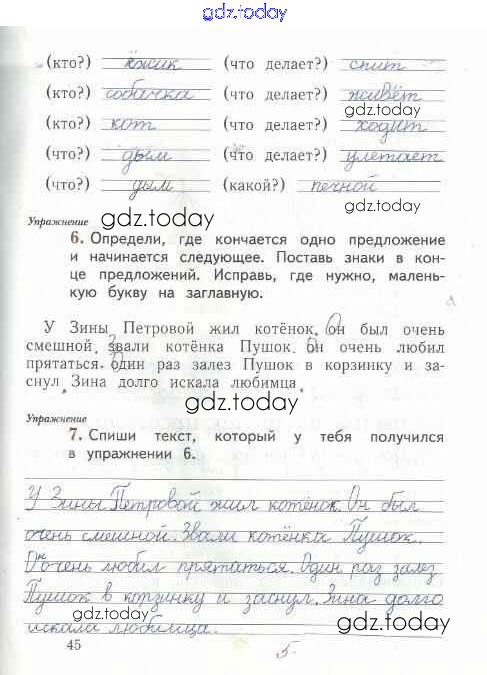 gdz.today
(кто?) ёжик (что делает?) спит
(кто?) собачка (что делает?) живёт
gdz.today
(кто?) кот (что делает?) ходит
(что?) дым (что делает?) улетает
(что?) дым (какой?) печной
Упражнение
gdz.today
6. Определи, где кончается одно предложение
и начинается следующее. Поставь знаки в кон-
це предложений. Исправь, где нужно, малень-
кую букву на заглавную.
У Зины Петровой жил котёнок. Он был очень
смешной. Звали котёнка Пушок. Он очень любил
прятаться. Один раз залез Пушок в корзинку и за-
снул. Зина долго искала любимца.
gdz.today
Упражнение
7. Спиши текст, который у тебя получился
в упражнении 6.
У Зины Петровой жил котёнок. Он был
очень смешной. Звали котёнка Пушок.
Он очень любил прятаться. Один раз залез
Пушок в корзинку и заснул. Зина долго
искала любимца.
gdz.today
gdz.today
45
5-